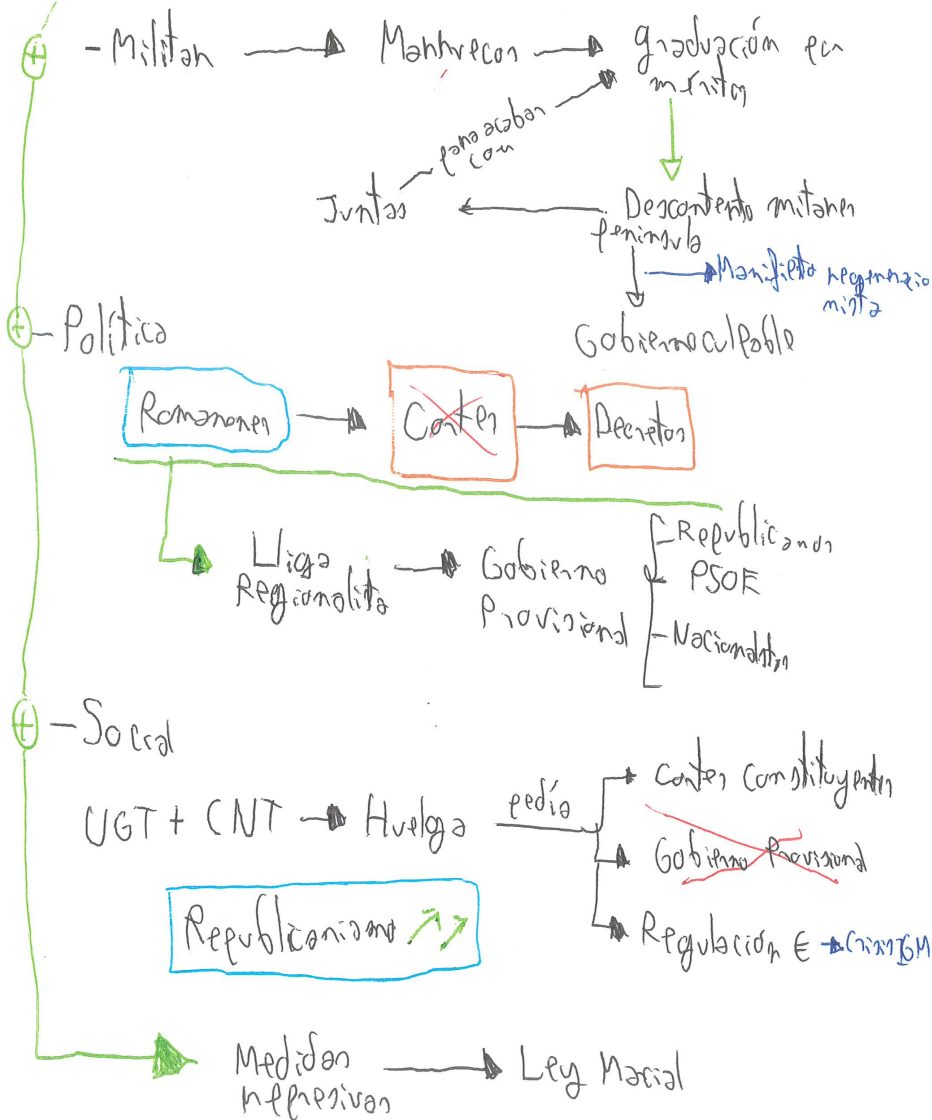 + - Militar
Marruecos
graduación por
méritos
para acabar
con
Juntas
Descontento mitares
península
Manifieto regeneracio
nista
Gobierno culpable
+ - Política
Romanones
Cortes
Decretos
Lliga
Regionalita
Gobierno
Provisional
- Republicanos
PSOE
- Nacionalistas
+ - Social
UGT + CNT
Huelga
pedía
Cortes Constituyentes
Gobierno Provisional
Regulación €
Crisis IGM
Republicanismo
Medidas
represivas
Ley Macial